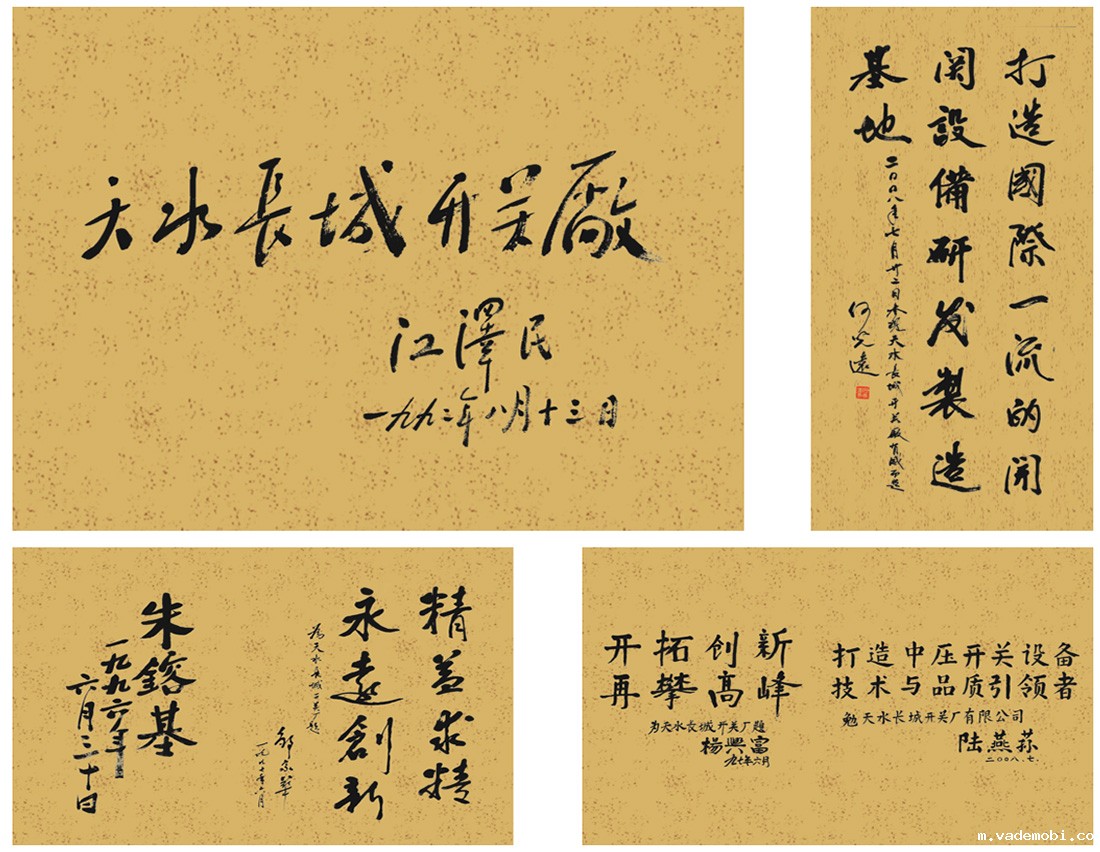 天水長城开关廠
江澤民
一九九二年八月十三日
打造國際一流的開
関設備研发製造
基地
二〇〇八年七月廿二日 天水長城开关厰有感而题
何光遠
朱鎔基
一九九六年
六月三十日
精益求精
永遠創新
為天水長城 題
鄒家華
开拓创新
再攀高峰
为天水长城开关厂题
杨興富
九七年六月
打造中压开关设备
技术与品质引领者
勉天水长城开关厂有限公司
陆燕荪
二〇〇八.七.
m.vademobi.co